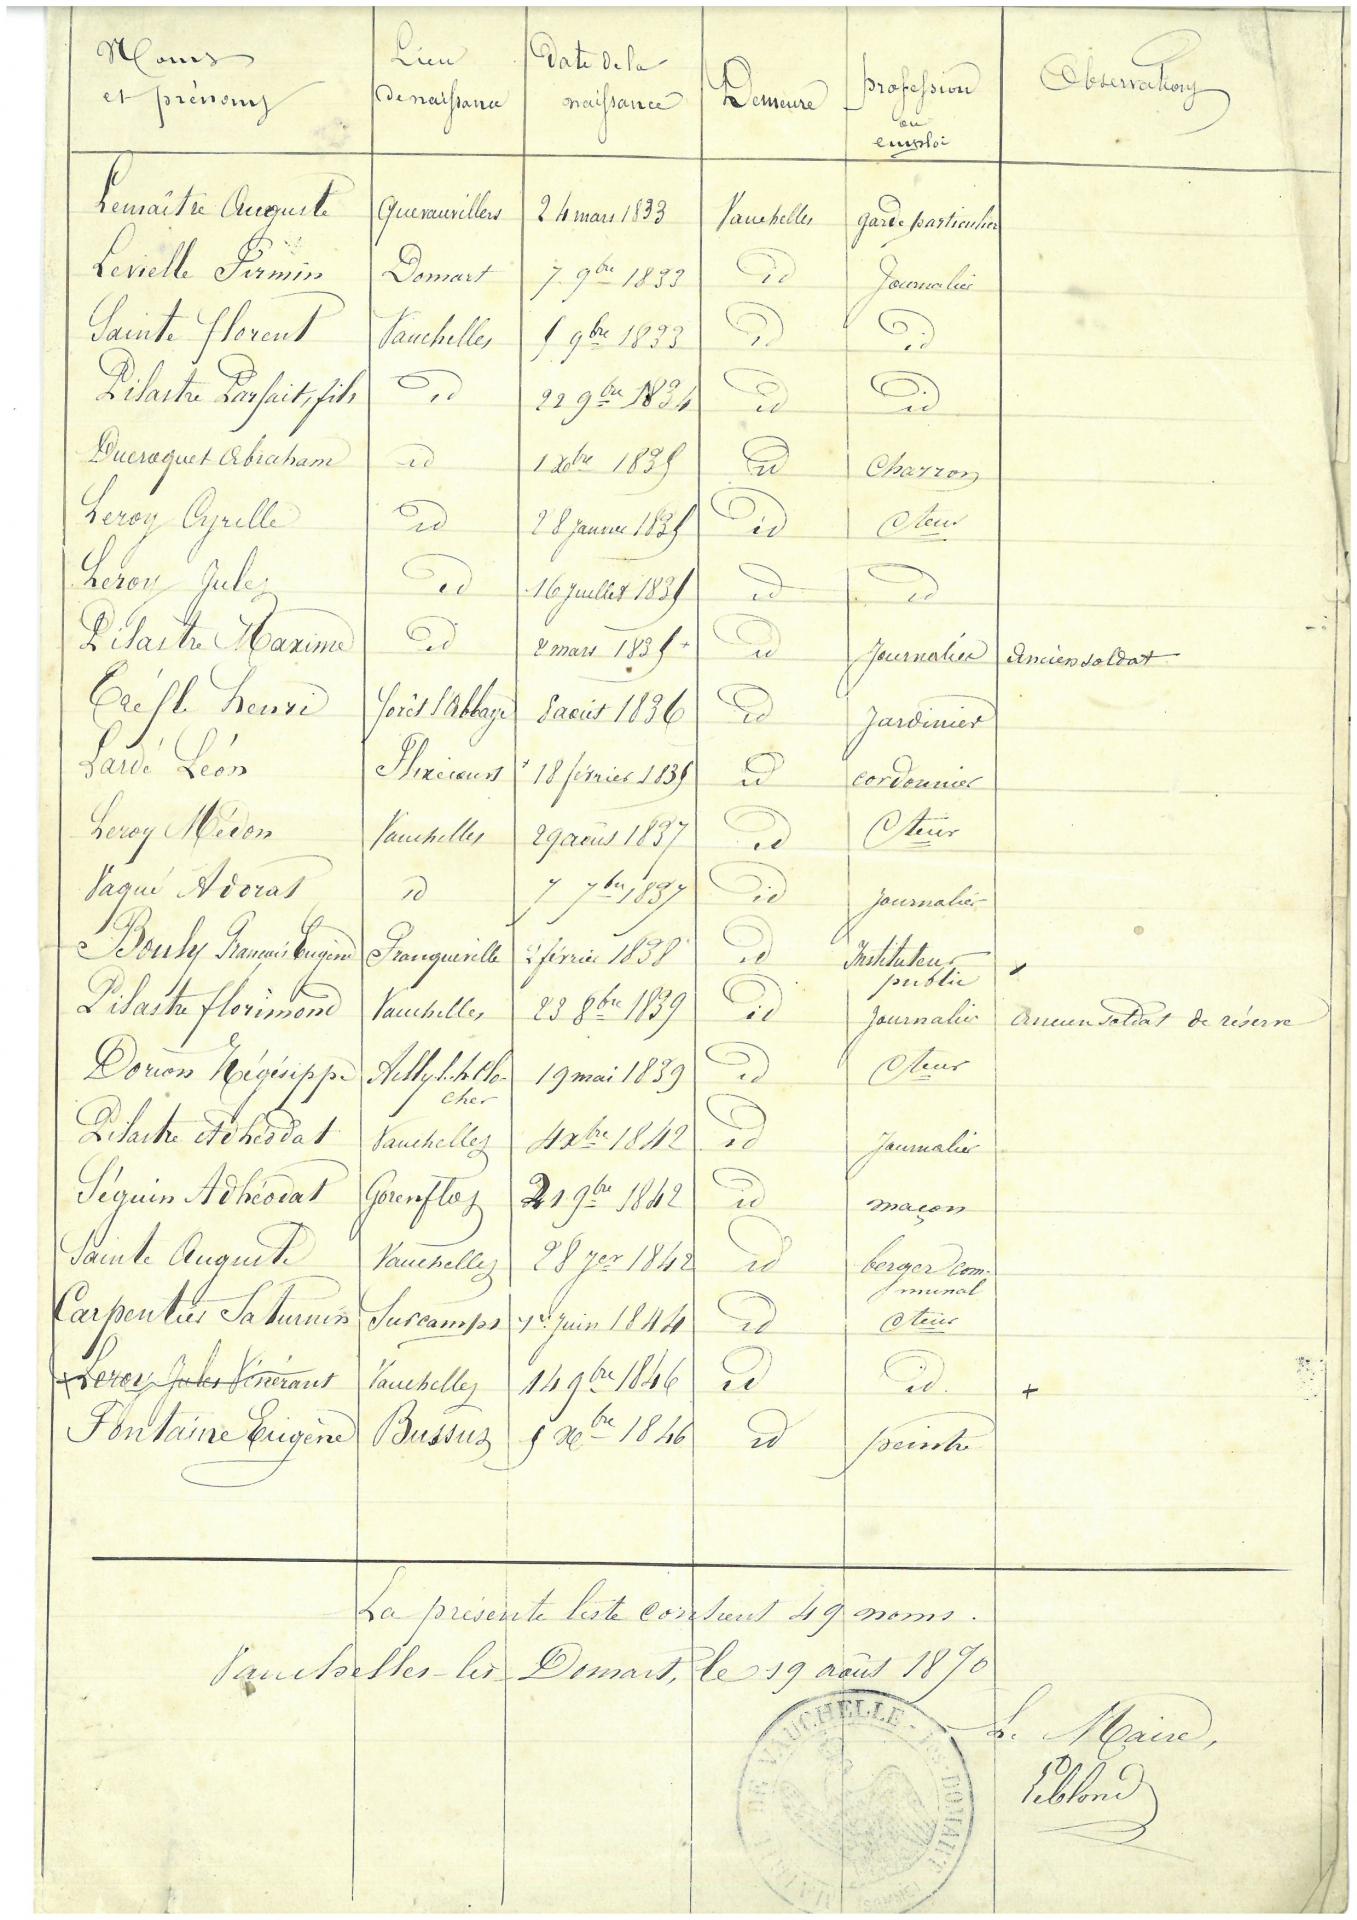 Noms et prénoms | Lieu de naissance | Date de la naissance | Demeure | profession ou emploi | Observations
Lemaître Auguste | Quevauvillers | 24 mars 1833 | Vauchelles | garde particulier
Levielle Firmin | Domart | 7 9bre 1833 | id | Journalier
Sainte florent | Vauchelles | 5 9bre 1833 | id | id
Pilastre Parfait, fils | id | 22 9bre 1834 | id | id
Ducroquet Abraham | id | 1 Xbre 1835 | id | Charron
Leroy Cyrille | id | 28 janvier 1835 | id | Cteur
Leroy Jules | id | 16 Juillet 1835 | id | id
Pilastre Maxime | id | 2 mars 1835 + | id | Journalier | Ancien soldat
Tréfle henri | forêt l'Abbaye | 8 août 1836 | id | Jardinier
Lardé Léon | Flixecourt | 18 février 1835 | id | cordonnier
Leroy Médon | Vauchelles | 29 août 1837 | id | Cteur
Vaqué Adorat | id | 7 7bre 1837 | id | journalier
Bouly François Eugène | Franqueville | 2 février 1838 | id | Instituteur public
Pilastre florimond | Vauchelles | 23 8bre 1839 | id | Journalier | Ancien soldat de réserve
Dorion Hégésippe | Ailly-l.h.Clocher | 19 mai 1839 | id | Cteur
Pilastre Adhéodat | Vauchelles | 4 Xbre 1842 | id | Journalier
Séguin Adhéodat | Gorenflos | 21 9bre 1842 | id | maçon
Sainte Auguste | Vauchelles | 28 1842 | id | berger communal
Carpentier Saturnin | Surcamps | 1er Juin 1844 | id | Cteur
+ Leroy Jules Vénérant | Vauchelles | 14 9bre 1846 | id | id | +
Fontaine Eugène | Bussus | 5 Xbre 1846 | id | peintre
La présente liste contient 49 noms.
Vauchelles-les-Domart, le 19 août 1870
Le Maire,
Leblond
DE VAUCHELLE-LES-DOMART